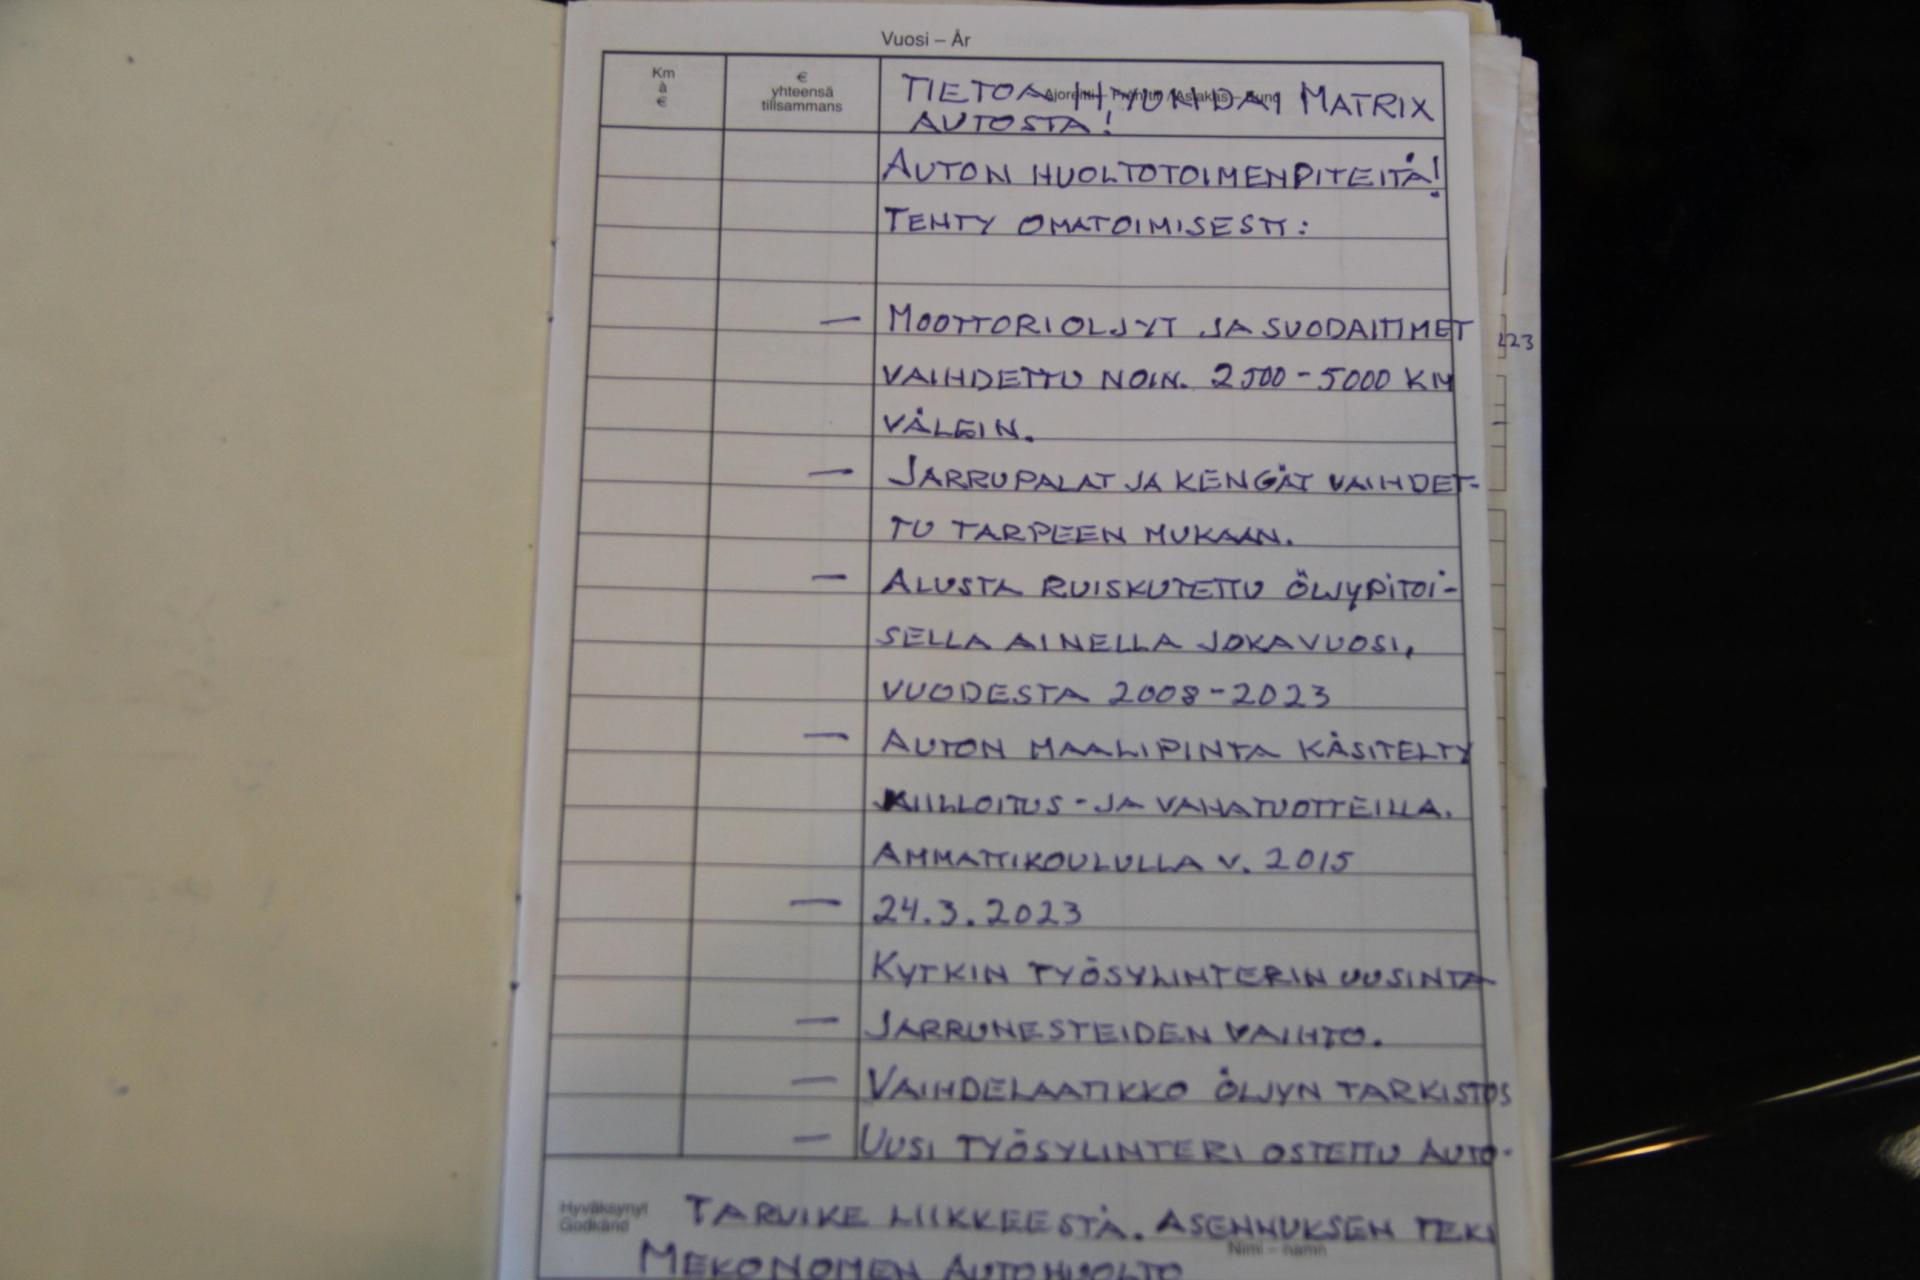 Vuosi – År
Km
à
€
€
yhteensä
tillsammans
TIETOA HYUNDAI MATRIX
AUTOSTA!
AUTON HUOLTOTOIMENPITEITÄ!
TEHTY OMATOIMISESTI:
— MOOTTORIÖLJYT JA SUODATTIMET
VAIHDETTU NOIN. 2500-5000 KM
VÄLEIN.
— JARRUPALAT JA KENGÄT VAIHDET-
TU TARPEEN MUKAAN.
— ALUSTA RUISKUTETTU ÖLJYPITOI-
SELLA AINELLA JOKAVUOSI,
VUODESTA 2008-2023
— AUTON MAALIPINTA KÄSITELTY
KIILLOITUS-JA VAHATUOTTEILLA.
AMMATTIKOULULLA V. 2015
— 24.3.2023
KYTKIN TYÖSYLINTERIN UUSINTA
— JARRUNESTEIDEN VAIHTO.
— VAIHDELAATIKKO ÖLJYN TARKISTUS
— UUSI TYÖSYLINTERI OSTETTU AUTO-
Hyväksynyt
Godkänd
TARVIKE LIIKKEESTÄ. ASENNUKSEN TEKI
Nimi – namn
MEKONOMEN AUTOHUOLTO